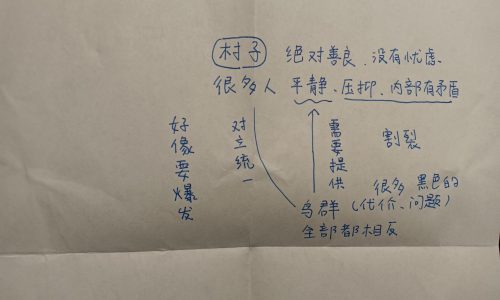 村子 绝对善良、没有忧虑、
很多人 平静、压抑、内部有矛盾
好像要爆发
对立统一
需要提供
割裂
很多 黑色的
鸟群(代价、问题)
全部都相反